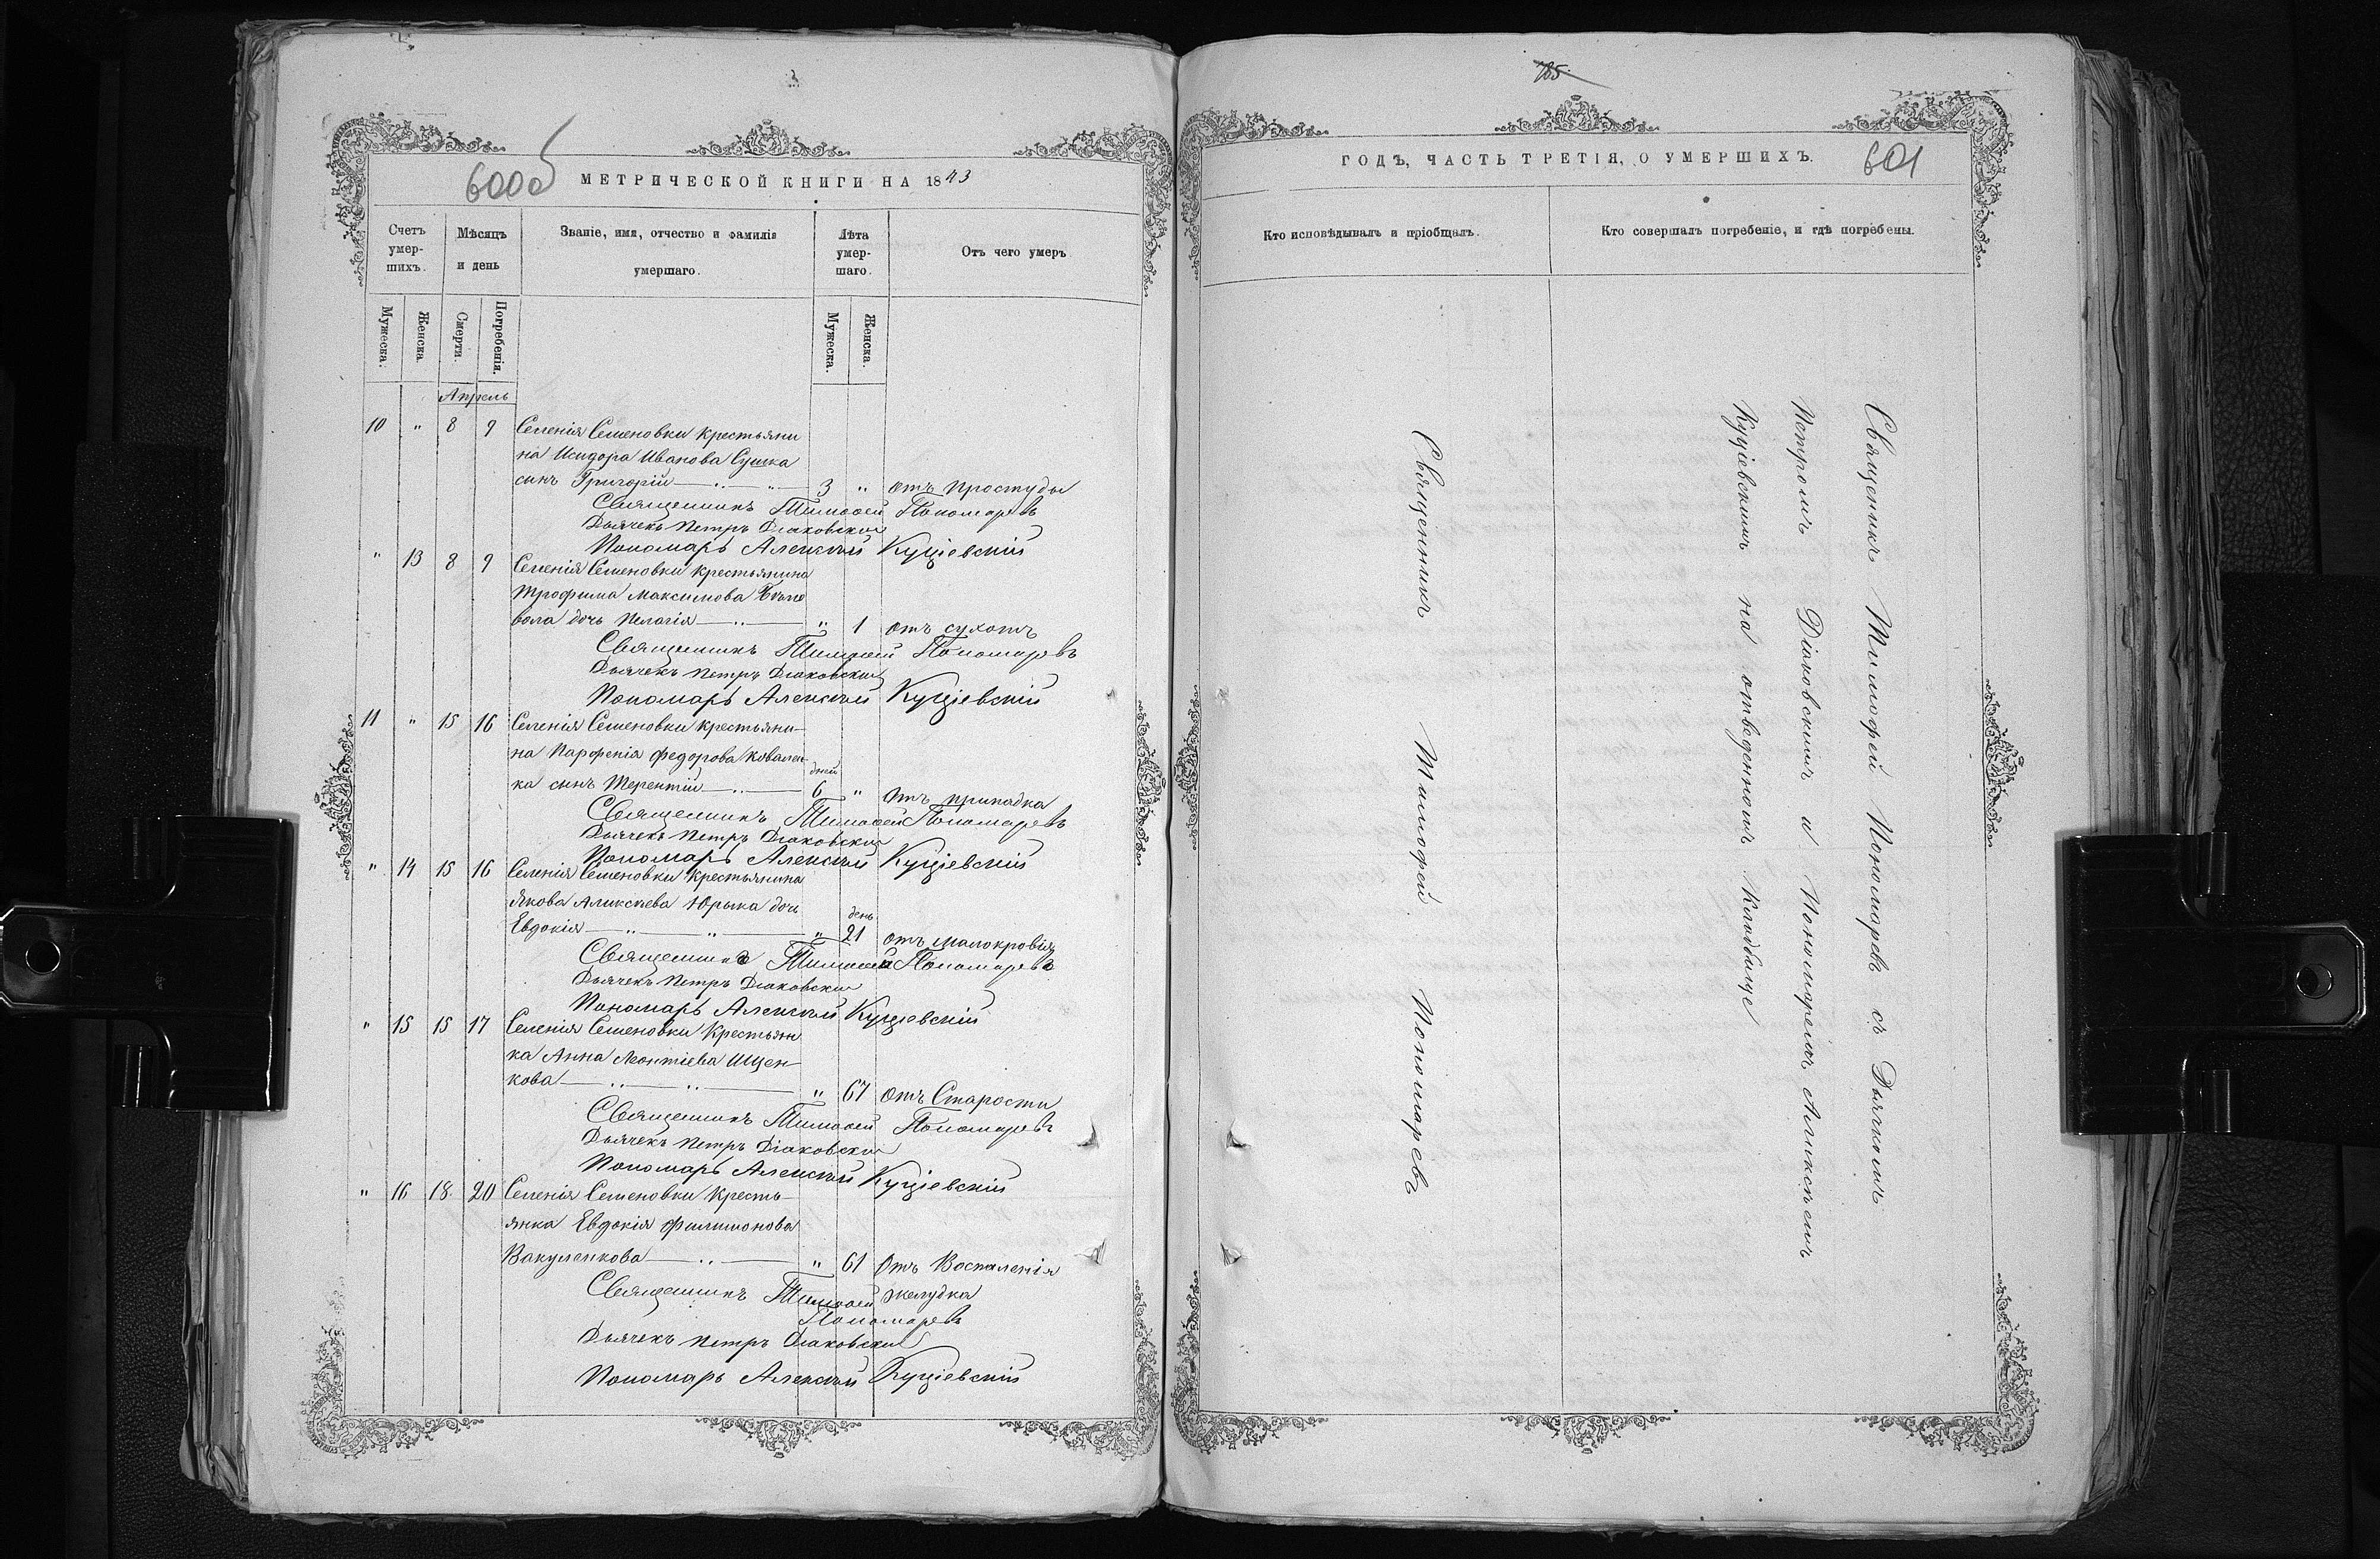 600об
МЕТРИЧЕСКОЙ КНИГИ НА 1843
Счетъ умер-шихъ.
Мѣсяцъ и день
Званіе, имя, отчество и фамилія умершаго.
Лѣта умер-шаго.
Отъ чего умеръ
Мужеска.
Женска.
Смерти.
Погребенія.
Мужеска.
Женска.
Апрель
10 " 8 9 Селенія Семеновки крестьяни
на Исидора Иванова Сушка
сынъ Григорій 3 " отъ простуды
Священникъ Тимофей Пономаревъ
Дьячекъ Петръ Діаковскій
Пономарь Алексѣй Куціевскій
" 13 8 9 Селенія Семеновки крестьянина
Трофима Максимова
вола дочь Пелагія " 1 отъ сухотъ
Священникъ Тимофей Пономаревъ
Дьячекъ Петръ Діаковскій
Пономарь Алексѣй Куціевскій
11 " 15 16 Селенія Семеновки крестьяни-
на Парфенія Федорова Ковален-
дней
ка сынъ Терентій 6 " отъ припадка
Священникъ Тимофей Пономаревъ
Дьячекъ Петръ Діаковскій
Пономарь Алексѣй Куціевскій
" 14 15 16 Селенія Семеновки крестьянина
Якова Аликсѣева Юрыка дочь
день
Евдокія " 21 отъ малокровія
Священникъ Тимофей Пономаревъ
Дьячекъ Петръ Діаковскій
Пономарь Алексѣй Куціевскій
" 15 15 17 Селенія Семеновки Крестьян
ка Анна Леонтіева Ищен-
кова " 67 отъ Старости
Священникъ Тимофей Пономаревъ
Дьячекъ Петръ Діаковскій
Пономарь Алексѣй Куціевскій
" 16 18 20 Селенія Семеновки Кресть-
янка Евдокія Филимонова
Вакуленкова " 61 Отъ Воспаленія
желудка
Священникъ Тимофей
Пономаревъ
Дьячекъ Петръ Діаковскій
Пономарь Алексѣй Куціевскій
785
ГОДЪ, ЧАСТЬ ТРЕТІЯ, О УМЕРШИХЪ.
601
Кто исповѣдывалъ и пріобщалъ.
Кто совершалъ погребеніе, и гдѣ погребены.
Священникъ Тимофей Пономаревъ
Священникъ Тимофей Пономаревъ съ Дьячкомъ
Петромъ Діаковскимъ и Пономаремъ Аликсѣемъ
Куціевскимъ на отведенномъ Кладбище